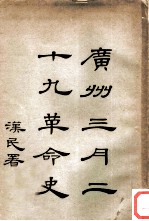 廣州三月二
十九革命史
漢民署